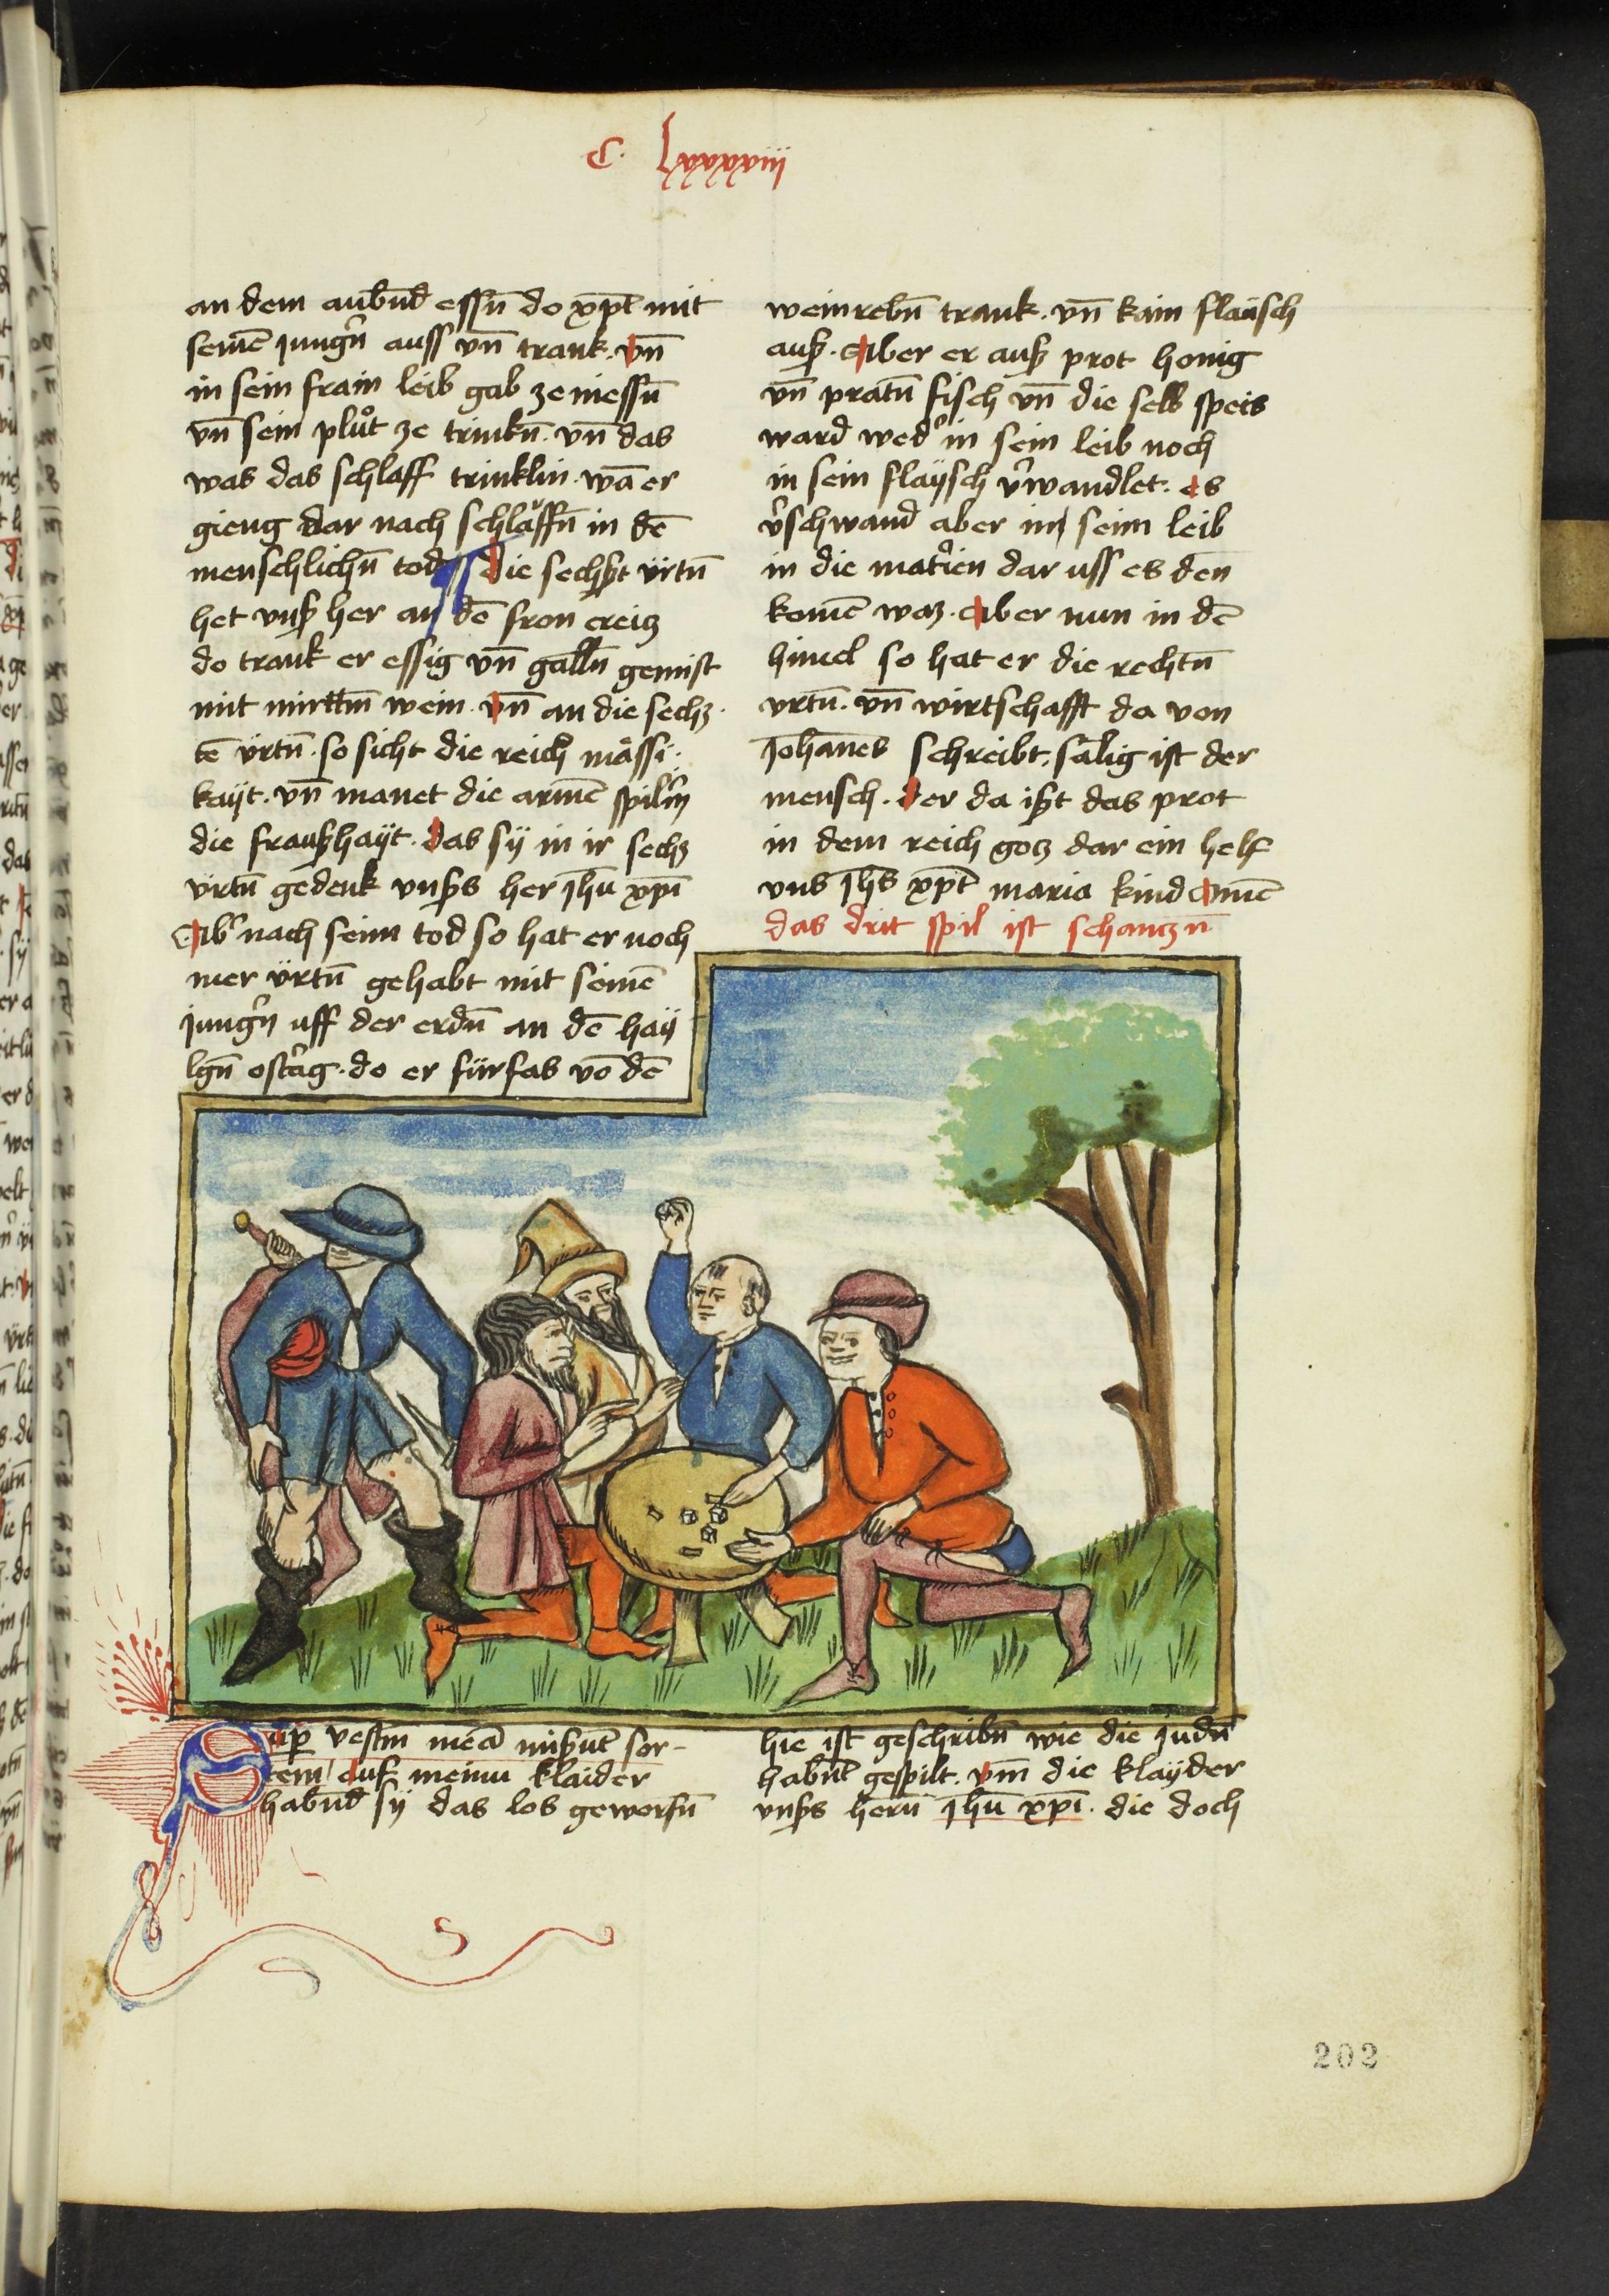 C. lxxxxviii
an dem aubn̄d essn̄ do xp̄t mit
seinē jungrn̄ auss vn̄ trank. vn̄
in sein frain leib gab ze niessn̄
vn̄ sein plůt ze trinkn̄. vn̄ das
was das schlaff trinklin. wā er
gieng dar nach schlaffn̄ in dē
menschlichn̄ tod die sechßt ürtn̄
het vnß her an dē fron creicz
do trank er essig vn̄ galln̄ gemist
mit mirrtm̄ wein. vn̄ an die sechz
tē ürtn̄. so sicht die reich mässi
kayt. vn̄ manet die armē spilrin
die fraußhayt. das sy in ir sechz
ürtn̄ gedenk vnßs her jhū xpī
Abr nach seim tod so hat er noch
mer ürtn̄ gehabt mit seinē
jungrn uff der erdn̄ an dē hay
lgn̄ ostrag. do er fürfas vō dē
weinrebn̄ trank. vn̄ kain flaisch
auß. Aber er auß prot honig
vn̄ pratn̄ fisch vn̄ die selb speis
ward wedr in sein leib noch
in sein flaysch vrwandlet. es
vrschwand aber in seim leib
in die matrien dar uss es den
komē waz. Aber nun in dē
himel so hat er die rechtn̄
vrtn̄. vn̄ wirtschafft da von
Johanes schreibt. sälig ist der
mensch. der da ißt das prot
in dem reich gocz dar ein helf
vns jhs xp̄t maria kind Amē
das drit spil ist schanczn̄
Sup̱ vestm̄ meā mißunt̄ sor-
tem auf meinu klaider
habnd̄ sy das los geworfn̄
hie ist geschribn̄ wie die judn̄
habnt̄ gespilt. vm̄ die klayder
vnßs hern̄ jhū xpī. die doch
202